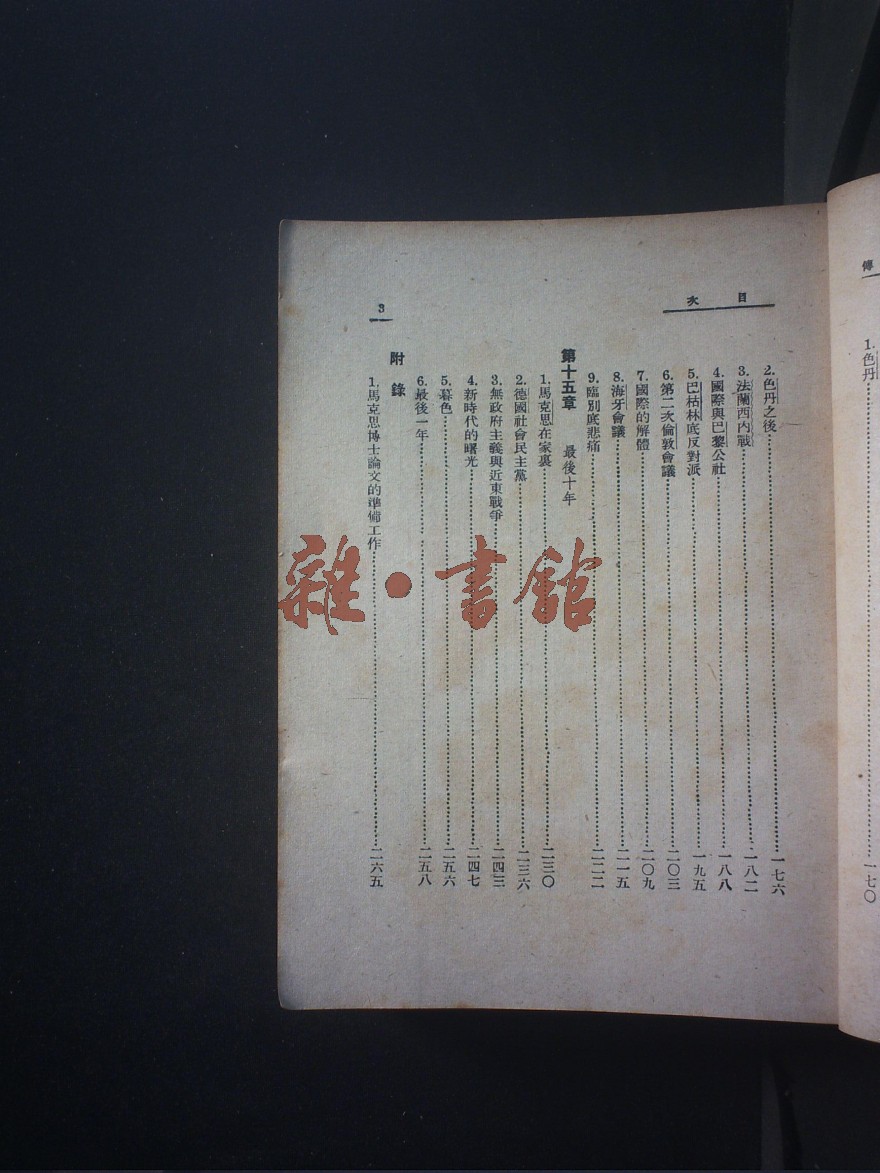 傳
1.色丹……一七〇
目次
2.色丹之後……一七六
3.法蘭西內戰……一八二
4.國際與巴黎公社……一八八
5.巴枯林底反對派……一九五
6.第二次倫敦會議……二〇三
7.國際的解體……二〇九
8.海牙會議……二一五
9.臨別底悲痛……二二二
第十五章 最後十年
1.馬克思在家裏……二三〇
2.德國社會民主黨……二三六
3.無政府主義與近東戰爭……二四三
4.新時代的曙光……二四七
5.暮色……二五六
6.最後一年……二五八
附錄
1.馬克思博士論文的準備工作……二六五
3
雜·書館